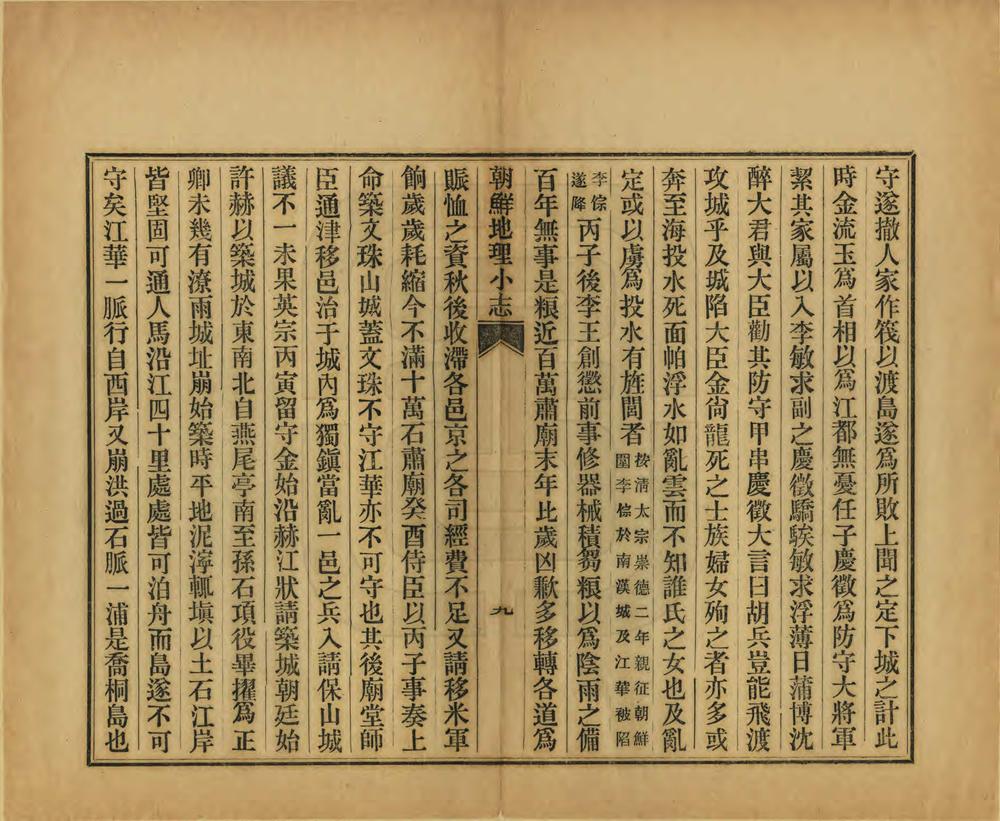 守遂撤人家作筏以渡島遂爲所敗上聞之定下城之計此
時金流玉爲首相以爲江都無憂任子慶徵爲防守大將軍
絜其家屬以入李敏求副之慶徵驕騃敏求浮薄日蒲博沈
醉大君與大臣勸其防守甲串慶徵大言曰胡兵豈能飛渡
攻城乎及城陷大臣金尙龍死之士族婦女殉之者亦多或
奔至海投水死面帕浮水如亂雲而不知誰氏之女也及亂
定或以虜爲投水有旌閭者按淸太宗崇德二年親征朝鮮圍李倧於南漢城及江華被陷
李倧遂降丙子後李王創懲前事修器械積芻粮以爲陰雨之備
百年無事是粮近百萬肅廟末年比歲凶歉多移轉各道爲
朝鮮地理小志
九
賑恤之資秋後收滯各邑京之各司經費不足又請移米軍
餉歲歲耗縮今不滿十萬石肅廟癸酉侍臣以丙子事奏上
命築文珠山城蓋文珠不守江華亦不可守也其後廟堂師
臣通津移邑治于城內爲獨鎭當亂一邑之兵入請保山城
議不一未果英宗丙寅留守金始沿赫江狀請築城朝廷始
許赫以築城於東南北自燕尾亭南至孫石項役畢擢爲正
卿未幾有潦雨城址崩始築時平地泥濘輒塡以土石江岸
皆堅固可通人馬沿江四十里處處皆可泊舟而島遂不可
守矣江華一脈行自西岸又崩洪過石脈一浦是喬桐島也